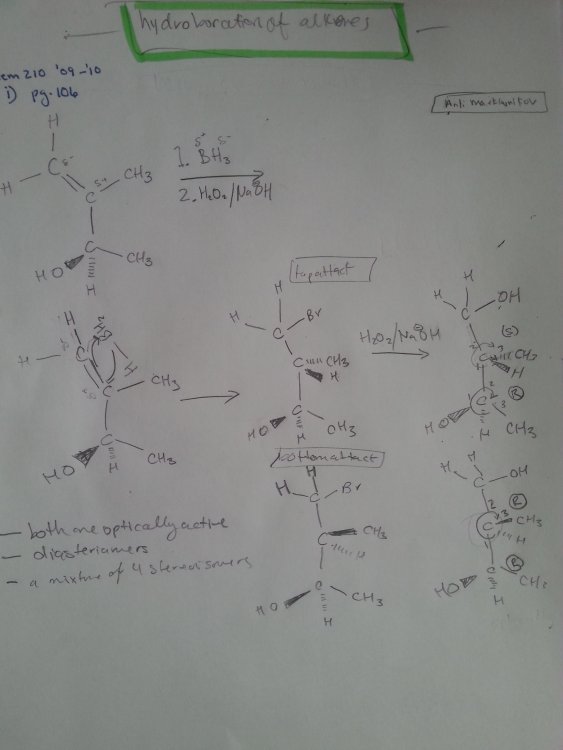 hydroboration of alkenes
em 210 '09-'10
i) pg. 106
Anti markunitov
H
δ+ δ-
1. BH₃
2. H₂O₂/NaOH
H C δ-
δ+ C CH₃
HO C CH₃
H
top attact
H
H C Br
C CH₃
H
HO C CH₃
H
H₂O₂/NaOH
H
H C OH
(S)
C CH₃
H
(R)
HO C CH₃
H
H
H C
H
C CH₃
HO C CH₃
H
bottom attact
H
H C Br
C CH₃
H
HO C CH₃
H
H C OH
(R)
C CH₃
H
(R)
HO C CH₃
H
— both are optically active
— diasteriamers
- a mixture of 4 stereoisomers